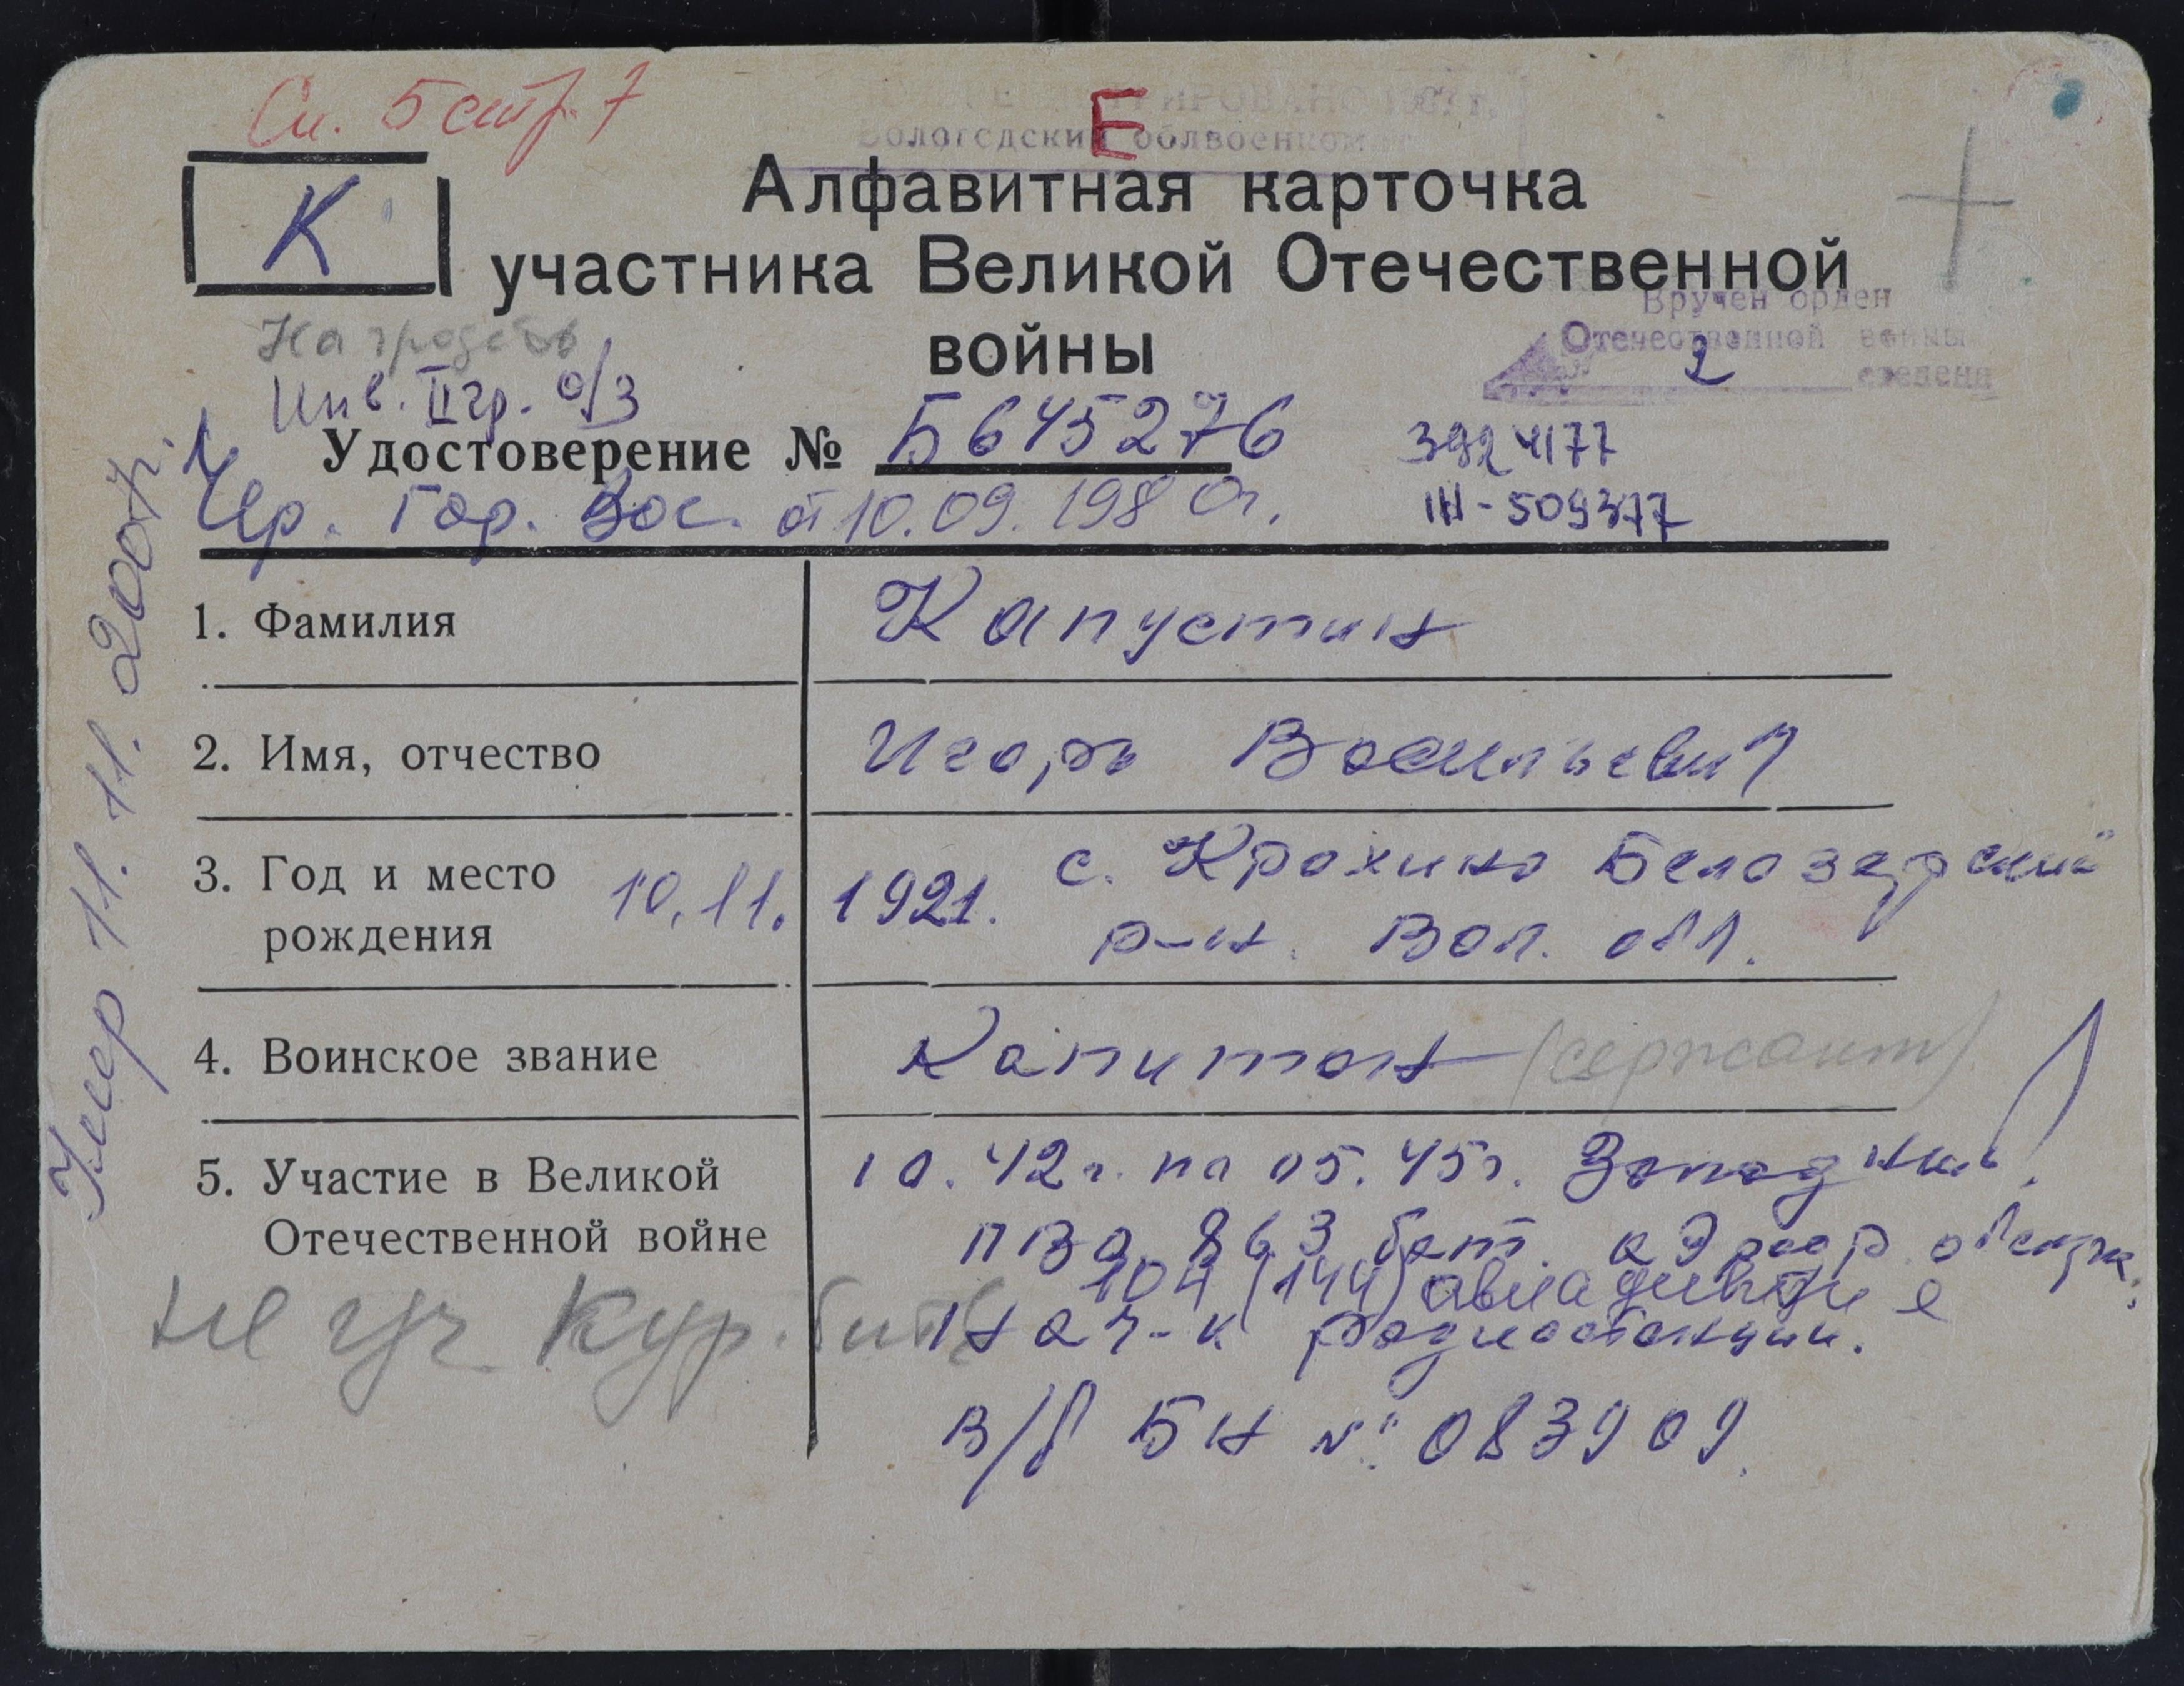 Сп. 5 стр. 7
Е
Вологодский облвоенком
К
Алфавитная карточка
участника Великой Отечественной
войны
Вручен орден
Отечественной войны
2 степени
Инв. II гр. о/з
Удостоверение № Б645276
3924177
Чер. Гор. Вос. от 10.09.1980г.
III-509377
Умер 11.11.2007г.
1. Фамилия Капустин
2. Имя, отчество Игорь Васильевич
3. Год и место рождения 10.11.1921. с. Крохино Белозерский
р-н. Вол. обл.
4. Воинское звание Капитан (сержант)
5. Участие в Великой Отечественной войне 10.42г. по 05.45г. Западный
ПВО, 863 бат. аэродр. обслуж.
104 (144) авиадивизии
нач-к радиостанции.
в/б БН № 083909.
не уч Кур. битв